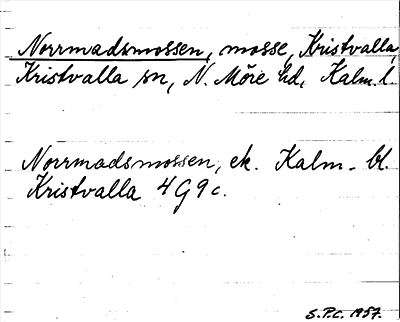 Norrmadsmossen, mosse, Kristvalla,
Kristvalla sn, N. Möre hd, Kalm. l.
Norrmadsmossen, ek. Kalm. bl.
Kristvalla 4G9c.
S.P.C. 1957.